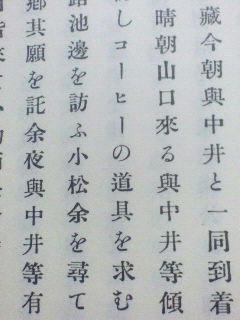 藏今朝與中井と一同到着
晴朝山口來る與中井等傾
しコーヒーの道具を求む
路池邊を訪ふ小松余を尋て
鄕其願を託余夜與中井等有